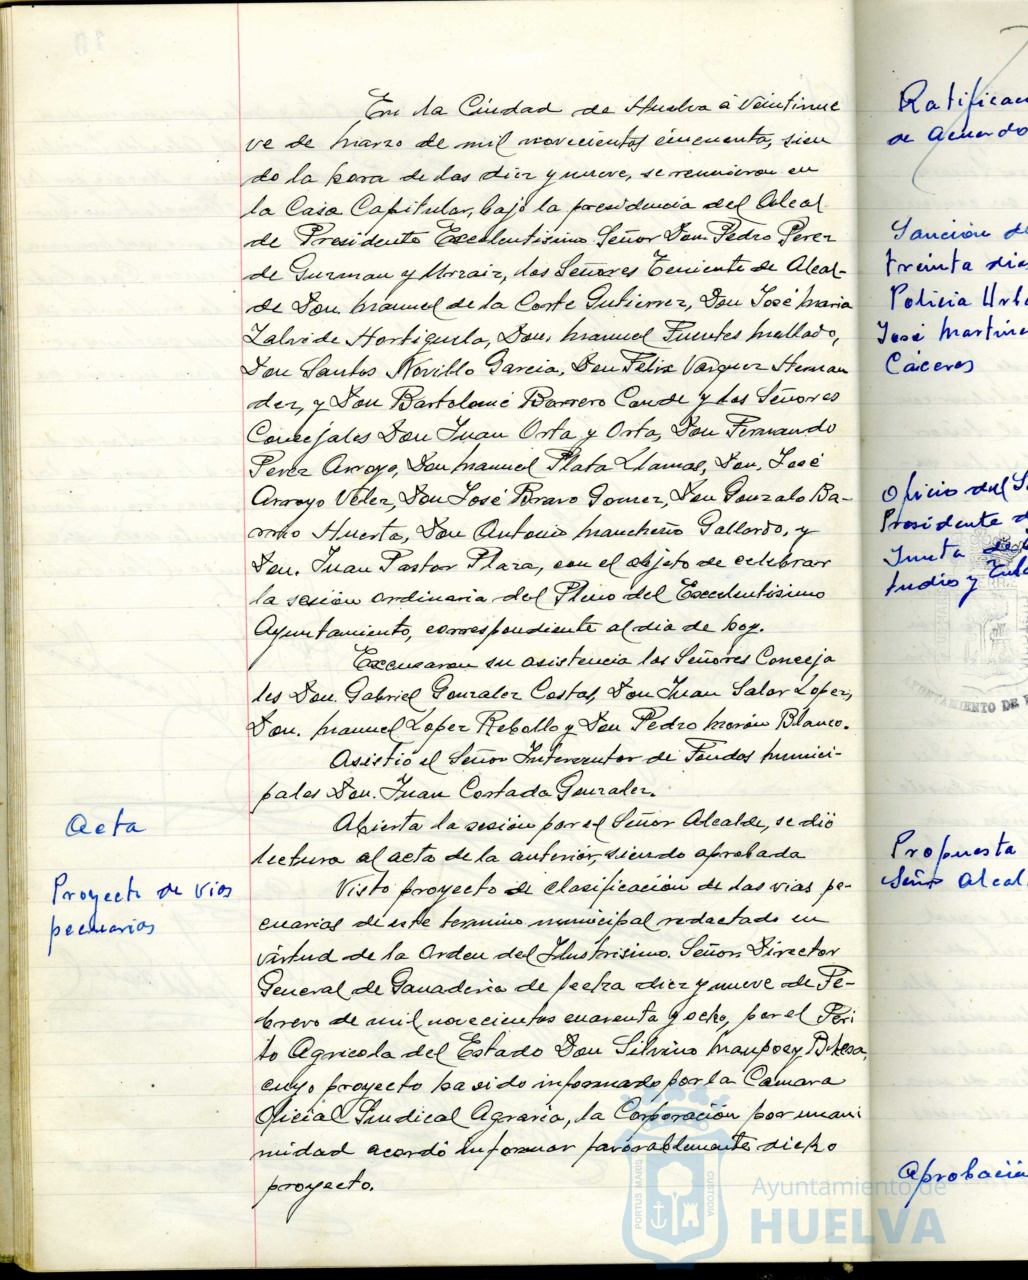 En la Ciudad de Huelva a veintinue
ve de marzo de mil novecientos cincuenta, sien
do la hora de las diez y nueve, se reunieron en
la Casa Capitular, bajo la presidencia del Alcal
de Presidente Excelentisimo Señor Don Pedro Perez
de Guzman y Urzaiz, los Señores Teniente de Alcal-
de Don Manuel de la Corte Gutierrez, Don José Maria
Zalvide Hortiguela, Don Manuel Fuentes Mallado,
Don Santos Novillo Garcia, Don Felix Vazquez Hernan
dez, y Don Bartolomé Borrero Conde y los Señores
Concejales Don Juan Orta y Orta, Don Fernando
Perez Arroyo, Don Manuel Plata Llamas, Don José
Arroyo Velez, Don José Bravo Gomez, Don Gonzalo Ba-
Huerta, Don Antonio Mancheño Gallardo, y
Don. Juan Pastor Plaza, con el objeto de celebrar
la sesión ordinaria del Pleno del Excelentisimo
Ayuntamiento, correspondiente al dia de hoy.
Excusaron su asistencia los Señores Conceja
les Don. Gabriel Gonzalez Costas, Don Juan Salor Lopez,
Don. Manuel Lopez Rebollo y Don Pedro Morón Blanco.
Asistió el Señor Interventor de Fondos Munici-
pales Don. Juan Costada Gonzalez.
Acta
Abierta la sesión por el Señor Alcalde, se dió
lectura al acta de la anterior, siendo aprobada
Proyecto de vias
pecuarias
Visto proyecto de clasificación de las vias pe-
cuarias de este termino municipal redactado en
virtud de la Orden del Ilustrisimo. Señor Director
General de Ganaderia de fecha diez y nueve de Fe-
brero de mil novecientos cuarenta y ocho, por el Peri
to Agricola del Estado Don Silvino Maupoey
cuyo proyecto ha sido informado por la Camara
Oficial Sindical Agraria, la Corporación por unani
midad acordó informar favorablemente dicho
proyecto.
Ratificaci
de acuerdo
Sanción de
treinta dia
Policia Urba
José Martine
Caceres
Oficio del S
Presidente d
Junta de
tudio y
AYUNTAMIENTO DE
Propuesta
Señor Alcal
Aprobación
PORTUS MARIS
CUSTODIA
Ayuntamiento de
HUELVA